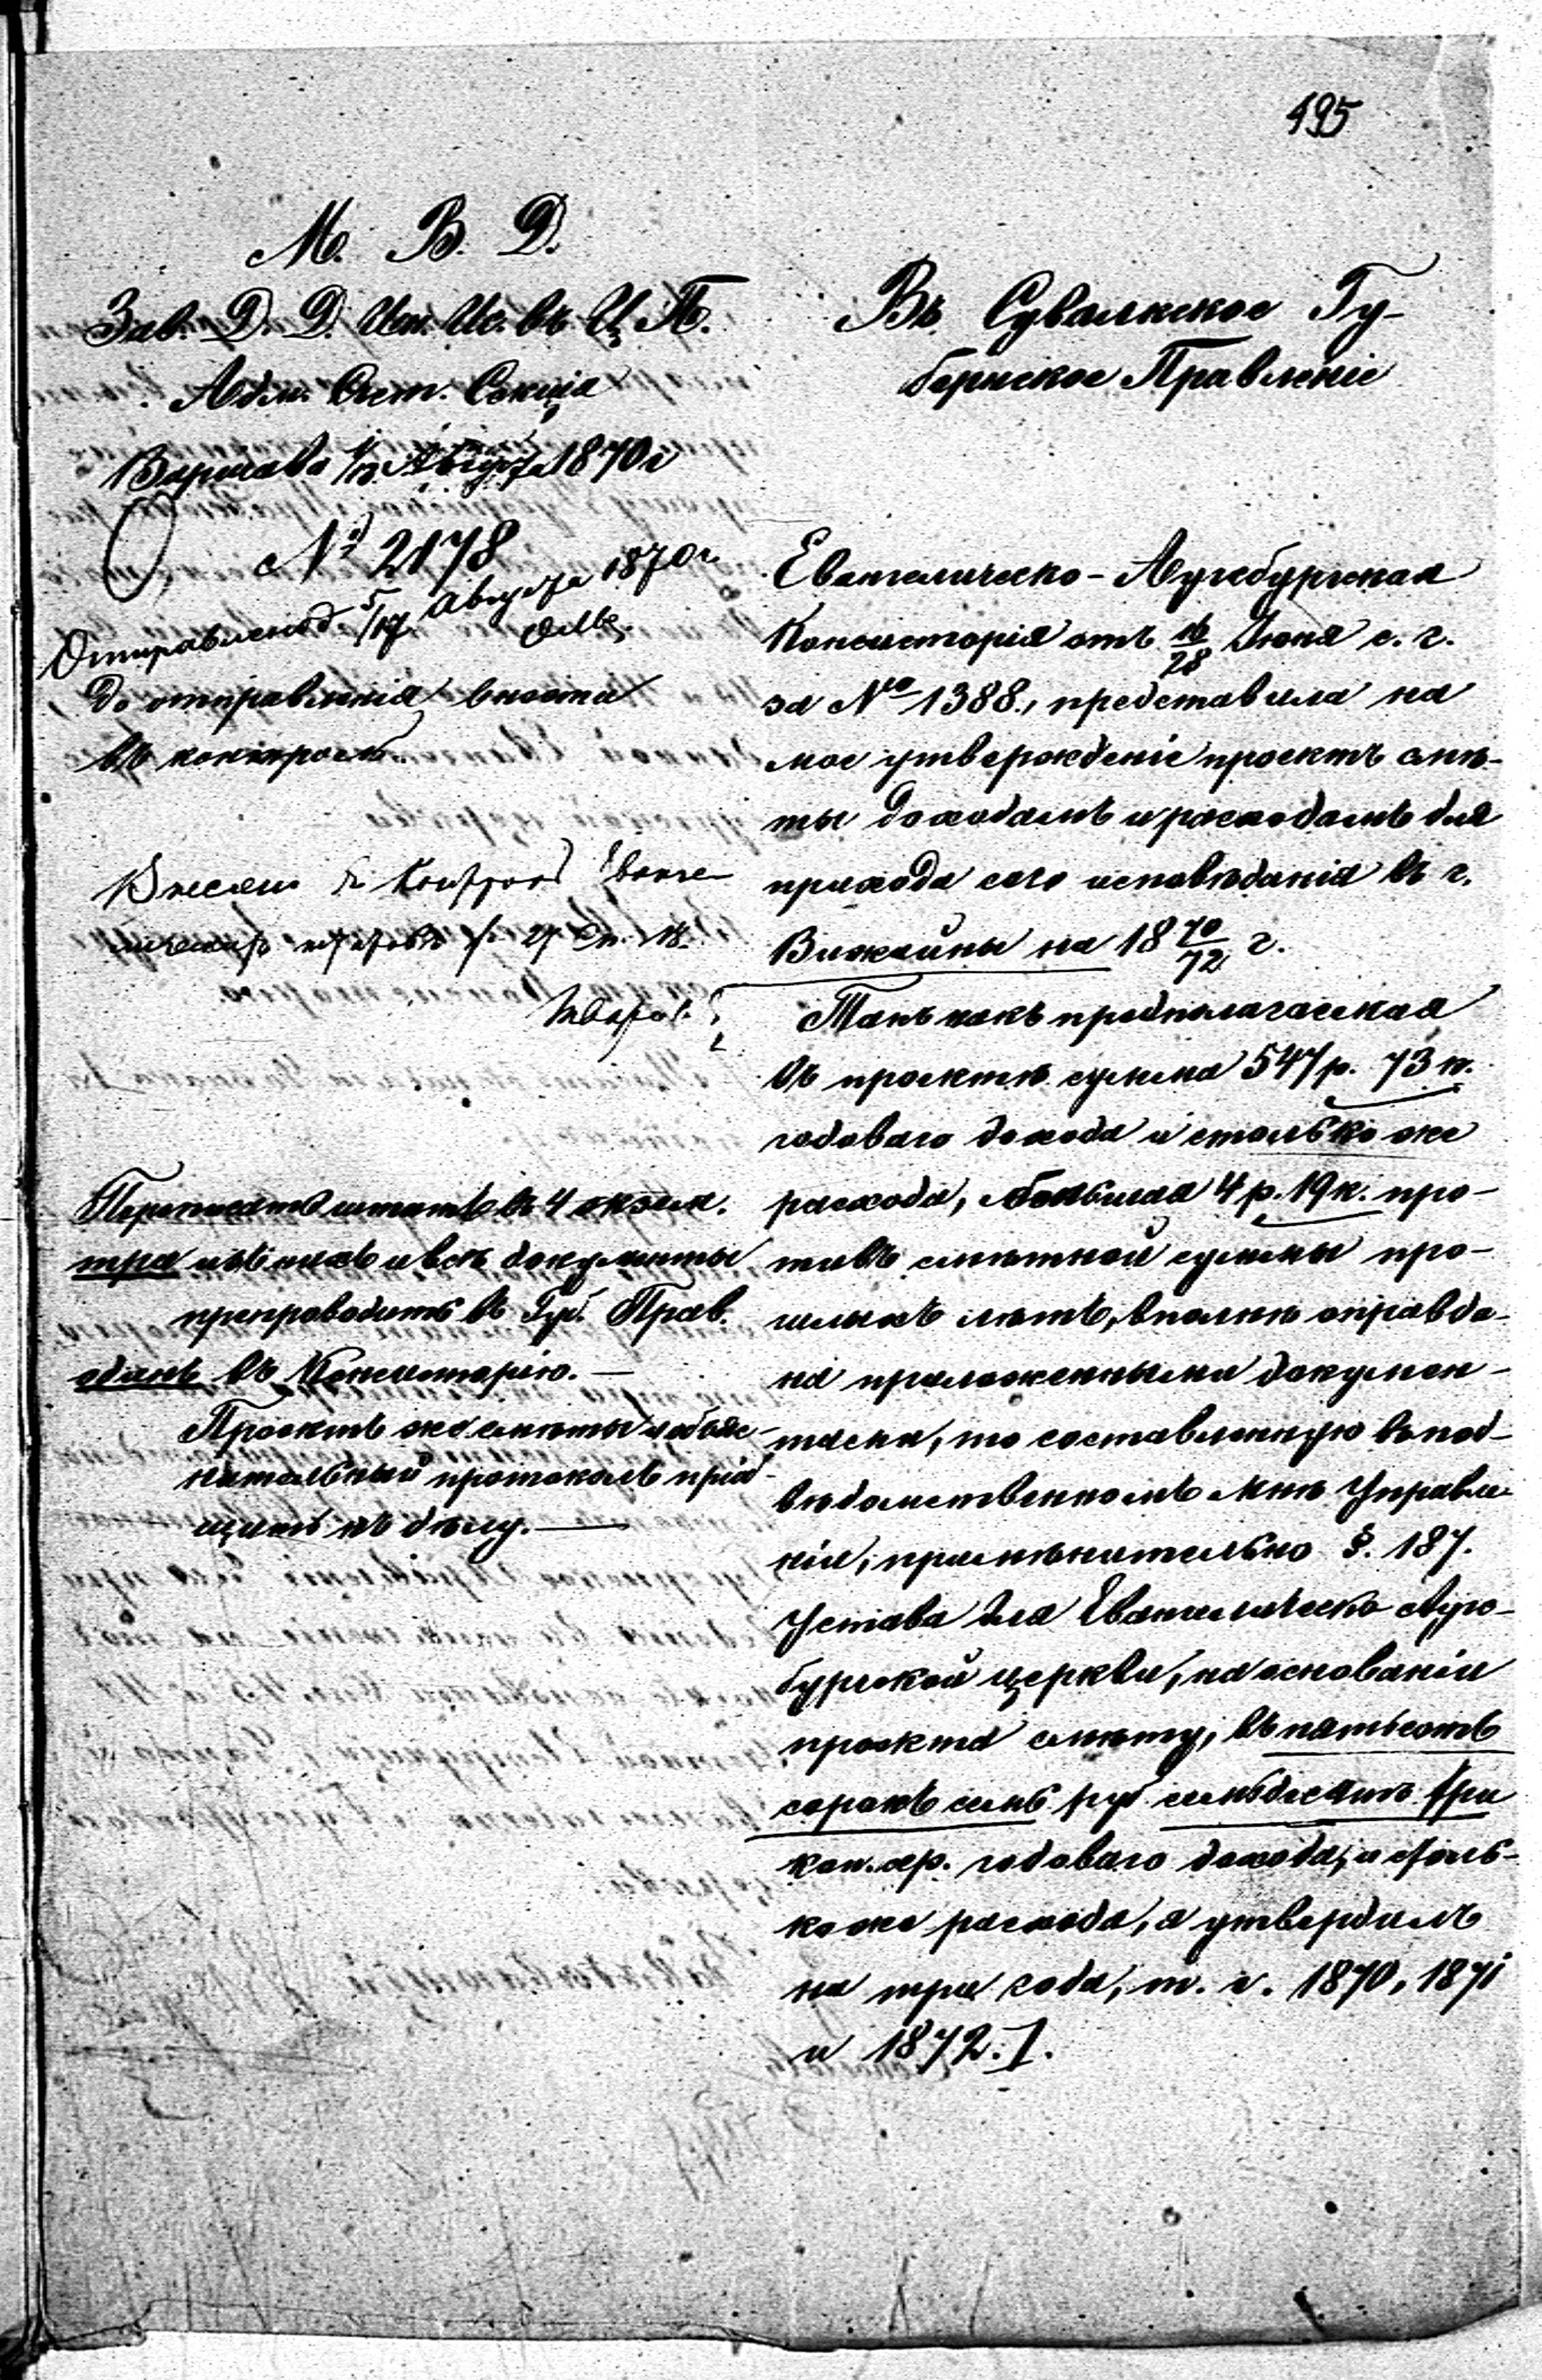 195
М. В. Д.
Зав. Д. Д. Ин. Ис. въ Ц. П.
Адм. Счет. Секція
Варшава Августа 1870 г
№ 2178
Отправлено 5/17 Августа 1870 г.
До отправленія внести
въ контроль.
Внесено въ Контроль Еванге-
лическихъ штатовъ
Переписать штатъ въ 4 экзем.
три изъ нихъ и всѣ документы
препроводить въ Губ. Прав.
одинъ въ Консисторію. —
Проектъ же смѣты и объяс-
нительный протоколъ пріоб-
щить къ дѣлу. —
Въ Сувалкское Гу-
бернское Правленіе
Евангелическо-Аугсбургская
Консисторія отъ 16/28 Іюня с. г.
за № 1388., представила на
мое утвержденіе проектъ смѣ-
ты доходамъ и расходамъ для
прихода сего исповѣданія въ г.
Вижайны на 18 70/72 г.
Такъ какъ предполагаемая
въ проектѣ сумма 547 р. 73 к.
годоваго дохода и столько же
расхода, большая 4 р. 19 к. про-
тивъ смѣтной суммы про-
шлыхъ лѣтъ, вполнѣ оправда-
на приложенными докумен-
тами, то составленную въ под-
вѣдомственномъ мнѣ Управле-
ніи, примѣнительно §. 187.
Устава для Евангелическо Аугс-
бургской церкви, на основаніи
проекта смѣту, въ пятьсотъ
сорокъ семь руб семьдесятъ три
коп. ср. годоваго дохода, и столь-
ко же расхода, я утвердилъ
на три года, т. е. 1870, 1871
и 1872. I.